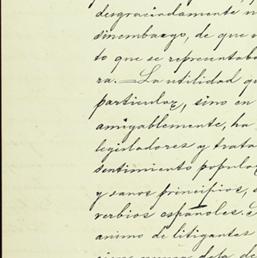 desgraciadamente n
sinembargo, de que
to que se representaba
ra.—La utilidad qu
particular, sino en
amigablemente, ha
legisladores y trata
sentimiento popula
y sanos principios,
verbios españoles.
animo de litigantes